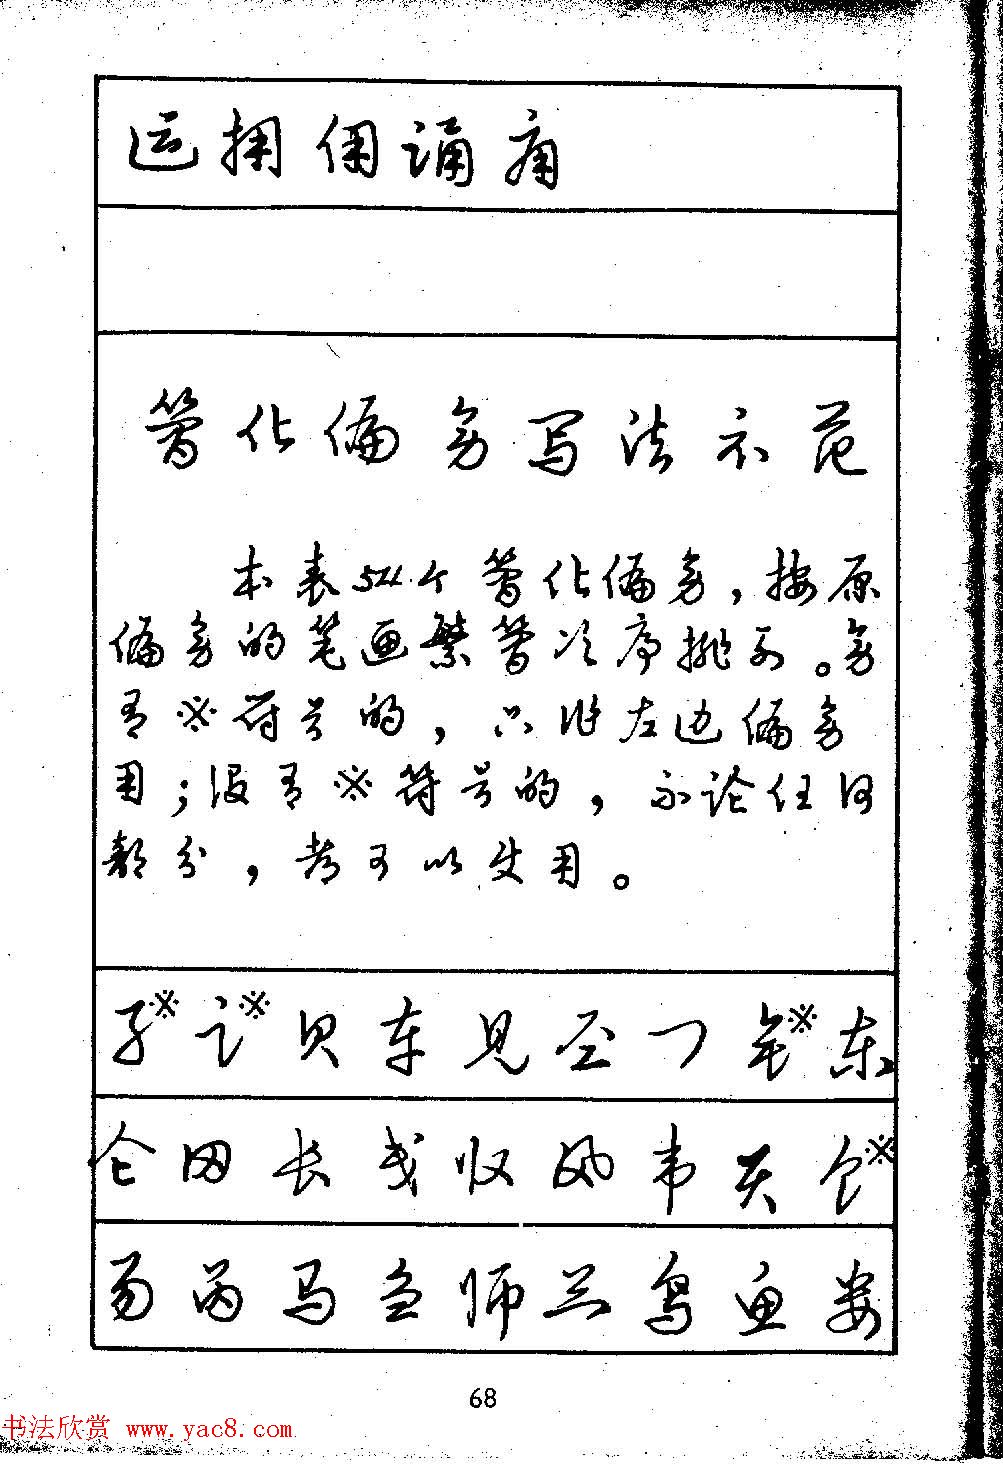 运拥佣诵痛
简化偏旁写法示范
本表54个简化偏旁，按原
偏旁的笔画繁简次序排列。旁
有※符号的，只准左边偏旁
用；没有※符号的，不论任何
部分，都可以使用。
※讠※贝车见门※东
仑冈长戋收风韦※
呙马刍师兰鸟鱼娄
68
书法欣赏 www.yac8.com